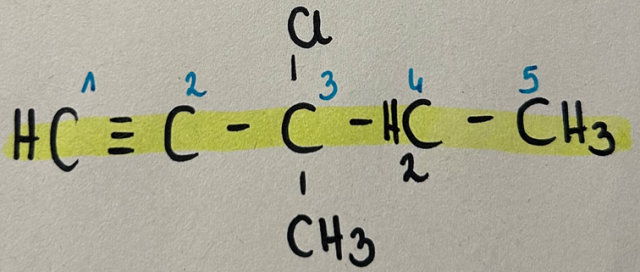 Cl
1 2 3 4 5
HC ≡ C - C - HC - CH3
2
CH3